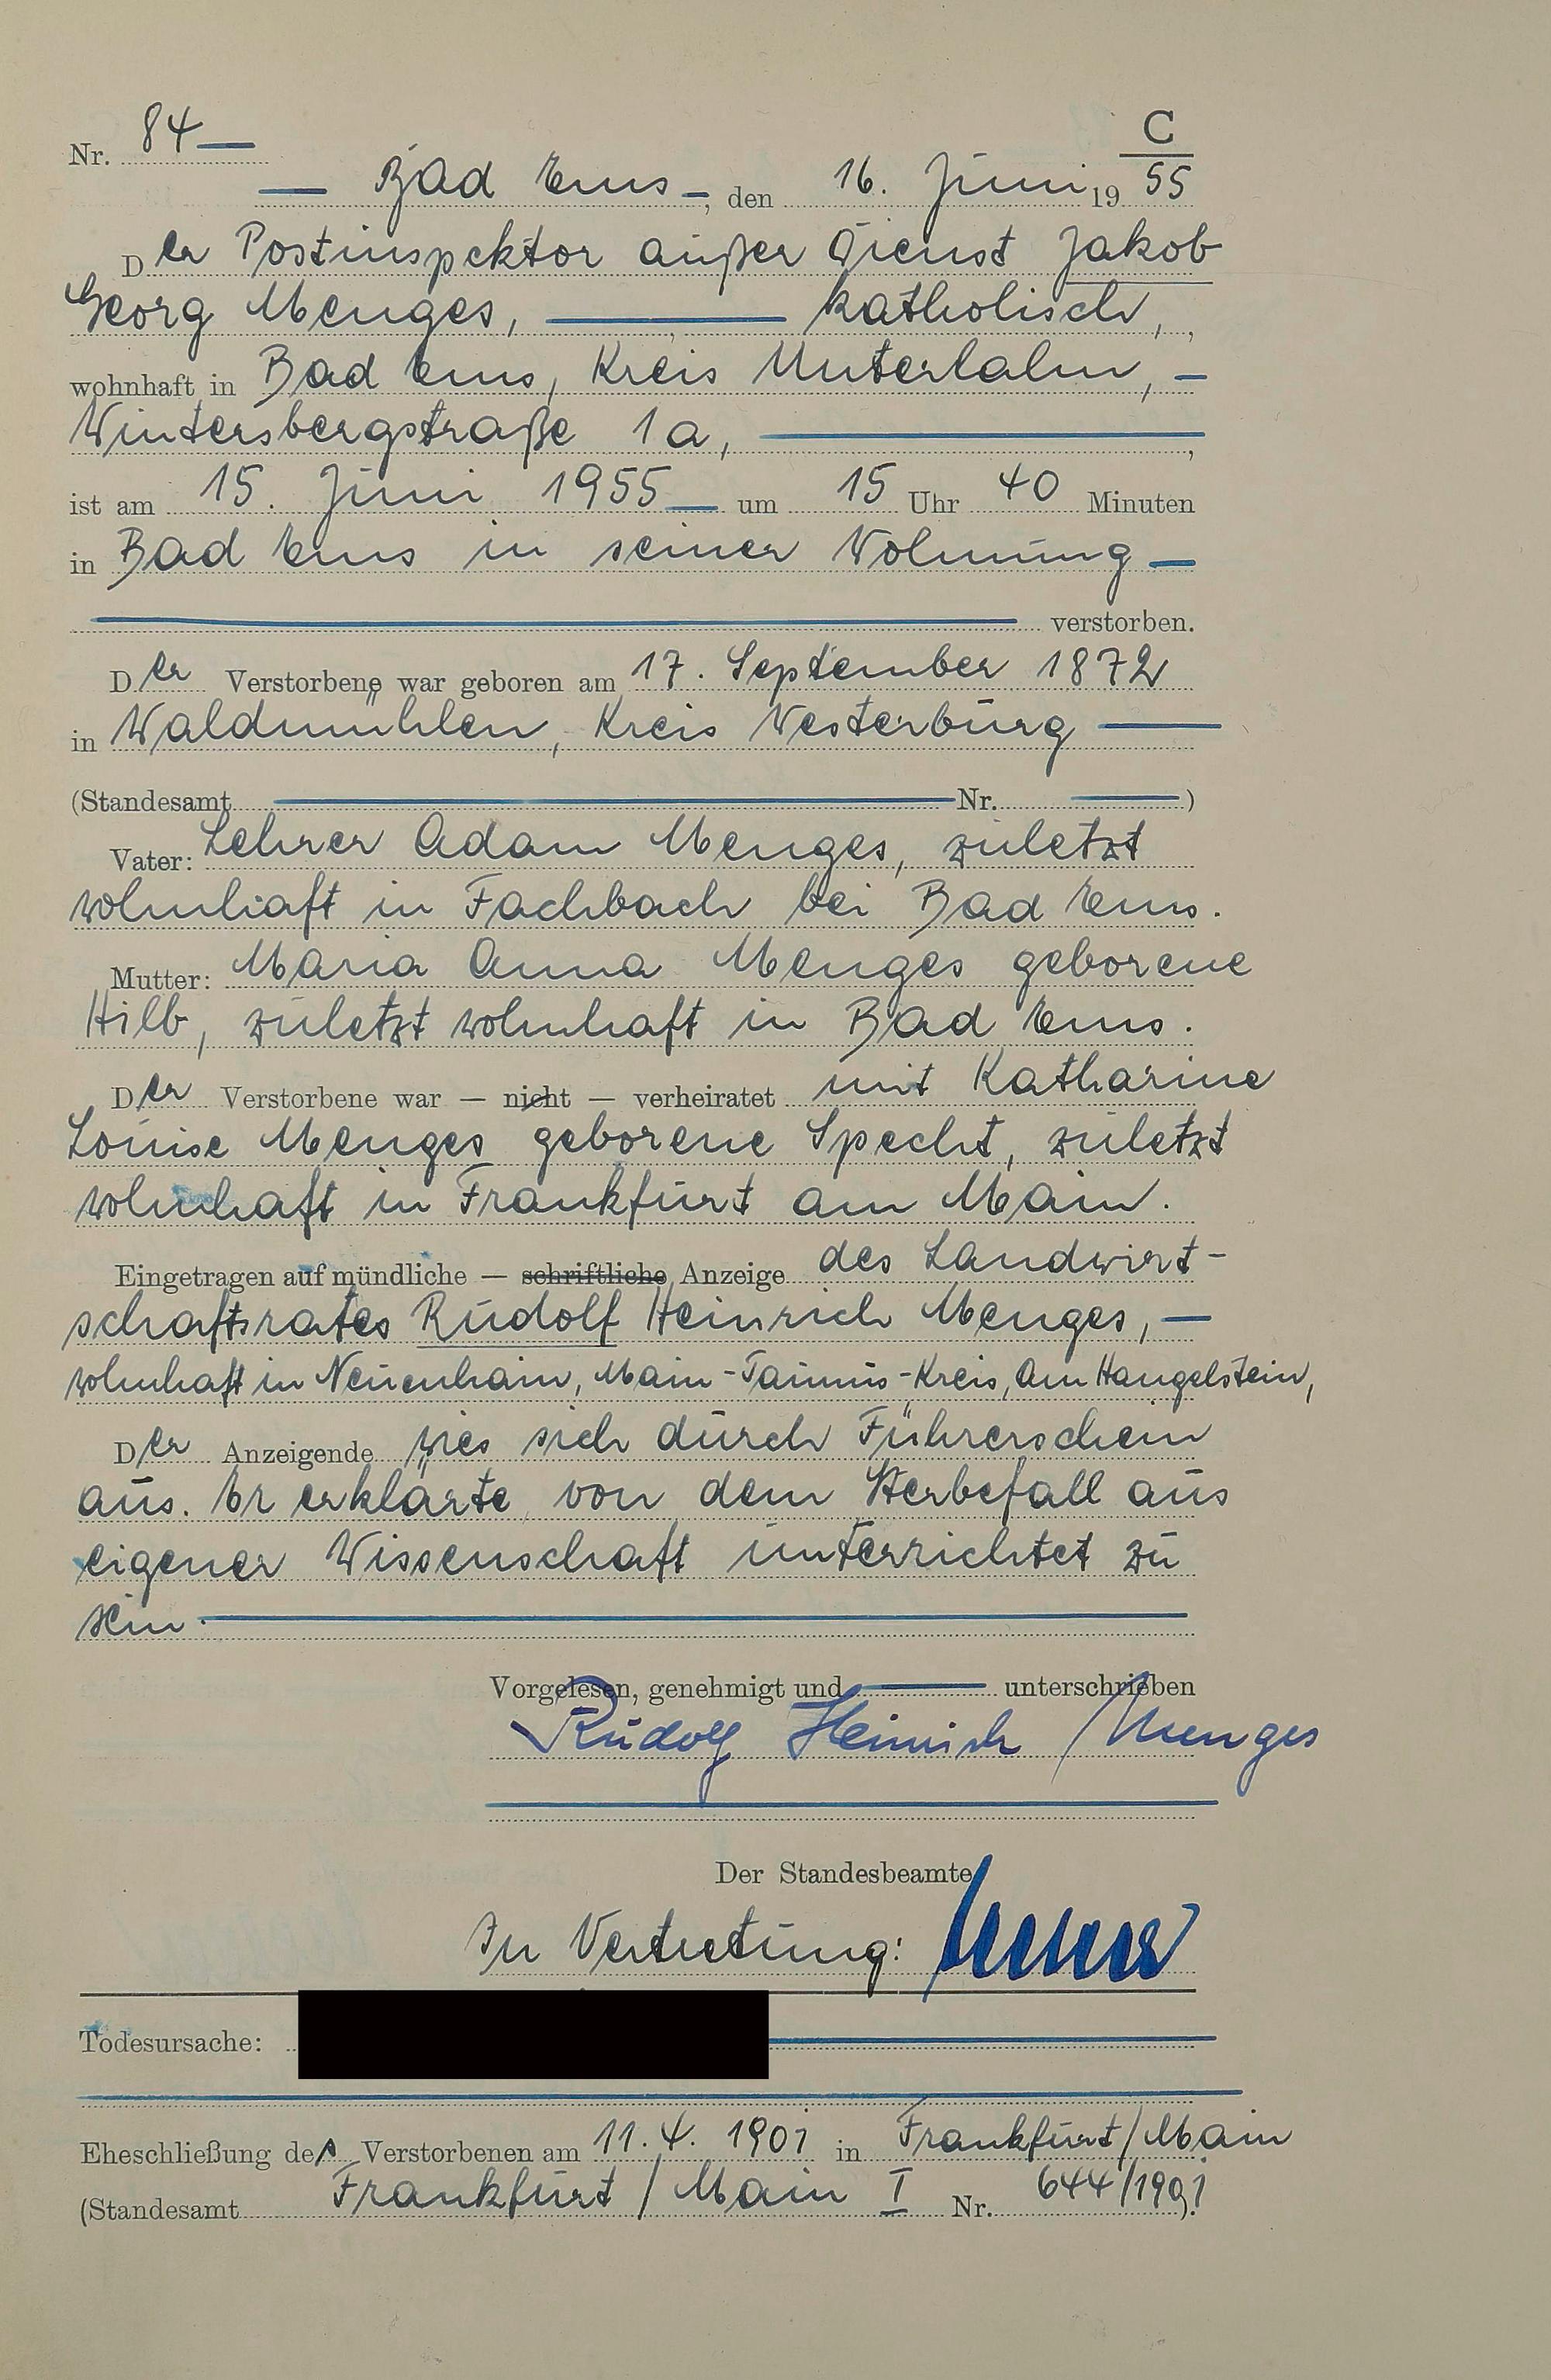 C
Nr. 84 —
— Bad Ems —, den 16. Juni 19 55
Der Postinspektor außer Dienst Jakob
Georg Menges, — katholisch, ,
wohnhaft in Bad Ems, Kreis Unterlahn, —
Wintersbergstraße 1a, — ,
ist am 15. Juni 1955 — um 15 Uhr 40 Minuten
in Bad Ems in seiner Wohnung —
— verstorben.
Der Verstorbene war geboren am 17. September 1872
in Waldmühlen, Kreis Westerburg —
(Standesamt — Nr. — )
Vater: Lehrer Adam Menges, zuletzt
wohnhaft in Fachbach bei Bad Ems.
Mutter: Maria Anna Menges geborene
Hilb, zuletzt wohnhaft in Bad Ems.
Der Verstorbene war — nicht — verheiratet mit Katharine
Louise Menges geborene Specht, zuletzt
wohnhaft in Frankfurt am Main.
Eingetragen auf mündliche — schriftliche Anzeige des Landwirt-
schaftsrates Rudolf Heinrich Menges, —
wohnhaft in Neuenhain, Main-Taunus-Kreis, Am Hangelstein,
Der Anzeigende wies sich durch Führerschein
aus. Er erklärte, von dem Sterbefall aus
eigener Wissenschaft unterrichtet zu
sein. —
Vorgelesen, genehmigt und — unterschrieben
Rudolf Heinrich Menges
Der Standesbeamte
In Vertretung:
Todesursache:
Eheschließung des Verstorbenen am 11. 4. 1901 in Frankfurt/Main
(Standesamt Frankfurt / Main I Nr. 644/1901).